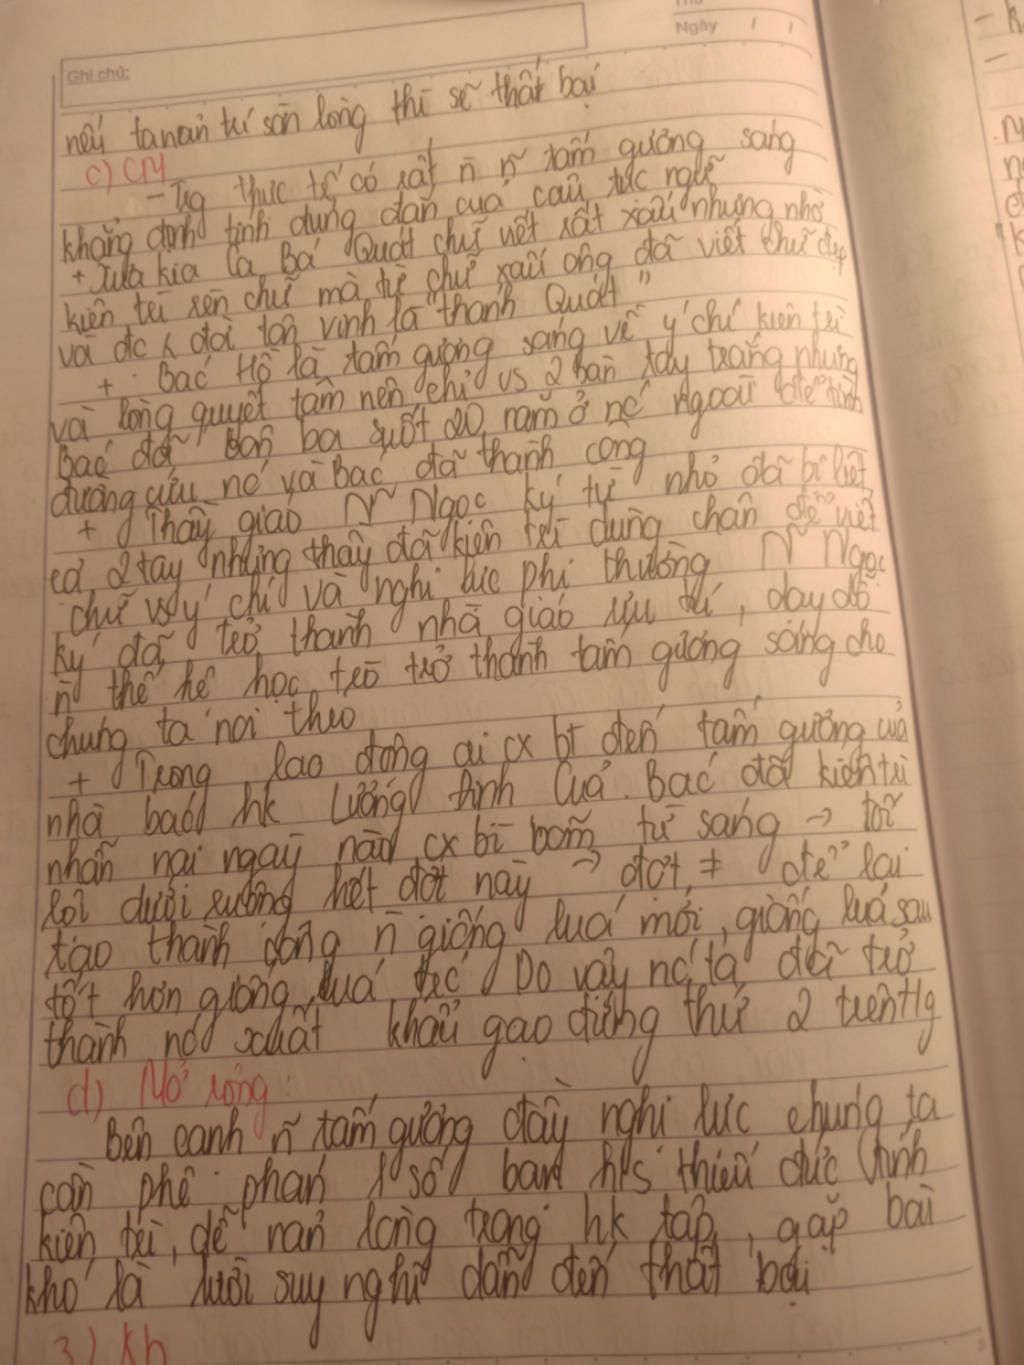 Thứ
Ngày / /
Ghi chú:
nếu ta nản trí sờn lòng thì sẽ thất bại
c) CM
- Trg thực tế có rất n̄ ñ tấm gương sáng
khẳng định tính đúng đắn của câu tục ngữ
+ Xưa kia là Bá Quát chữ viết rất xấu nhưng nhờ
kiên trì rèn chữ mà từ chữ xấu ông đã viết chữ đẹp
và đc đời tôn vinh là "thánh Quát"
+ Bác Hồ là tấm gương sáng về ý chí kiên trì
và lòng quyết tâm nên chỉ vs 2 bàn tay trắng nhưng
Bác đã bôn ba suốt 20 năm ở nc ngoài để tìm
đường cứu nc và Bác đã thành công
+ Thầy giáo Ñ Ngọc ký từ nhỏ đã bị liệt
cả 2 tay nhưng thầy đã kiên trì dùng chân để viết
chữ vs ý chí và nghị lực phi thường Ñ Ngọc
ký đã trở thành nhà giáo ưu tú, dạy dỗ
n̄ thế hệ học trò trở thành tấm gương sáng cho
chúng ta noi theo
+ Trong lao động ai cx bt đến tấm gương của
nhà báo hk Lương Định Của. Bác đã kiên trì
nhẫn nại ngày nào cx bì bõm từ sáng → tối
lội dưới ruộng hết đợt này → đợt ≠ để lai
tạo thành công n̄ giống lúa mới, giống lúa sau
tốt hơn giống lúa trc Do vậy nc ta đã trở
thành nc xuất khẩu gạo đứng thứ 2 trên tg
d) Mở rộng:
Bên cạnh ñ tấm gương đầy nghị lực chúng ta
cần phê phán 1 số bạn h/s thiếu đức tính
kiên trì, dễ nản lòng trong hk tập, gặp bài
khó là lười suy nghĩ dẫn đến thất bại
3) Kb